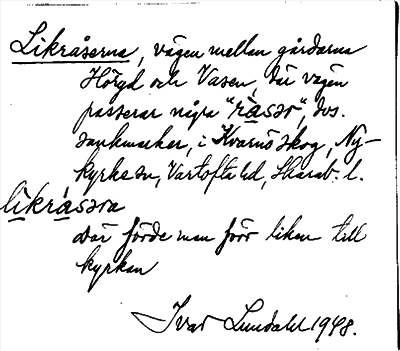 Likråserna, vägen mellan gårdarna
Höryd och Vasen, där vägen
passerar några "råsər", dvs.
sankmarker, i Kvarnö skog, Ny-
kyrka sn, Vartofta hd, Skarab. l.
likråsəra
där förde man förr liken till
kyrkan
Ivar Lundahl 1948.